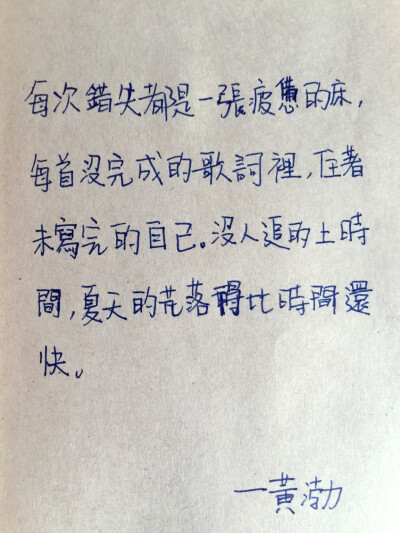 每次錯失都是一張疲憊的床，
每首沒完成的歌詞裡，住著
未寫完的自己。沒人追的上時
間，夏天的荒落得比時間還
快。
—黃渤